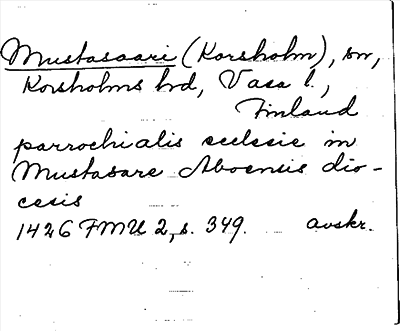 Mustasaari (Korsholm), sn,
Korsholms hd, Vasa l.,
Finland
parrochialis ecclesie in
Mustasare Aboensis dio-
cesis
1426 FMU 2, s. 349. avskr.